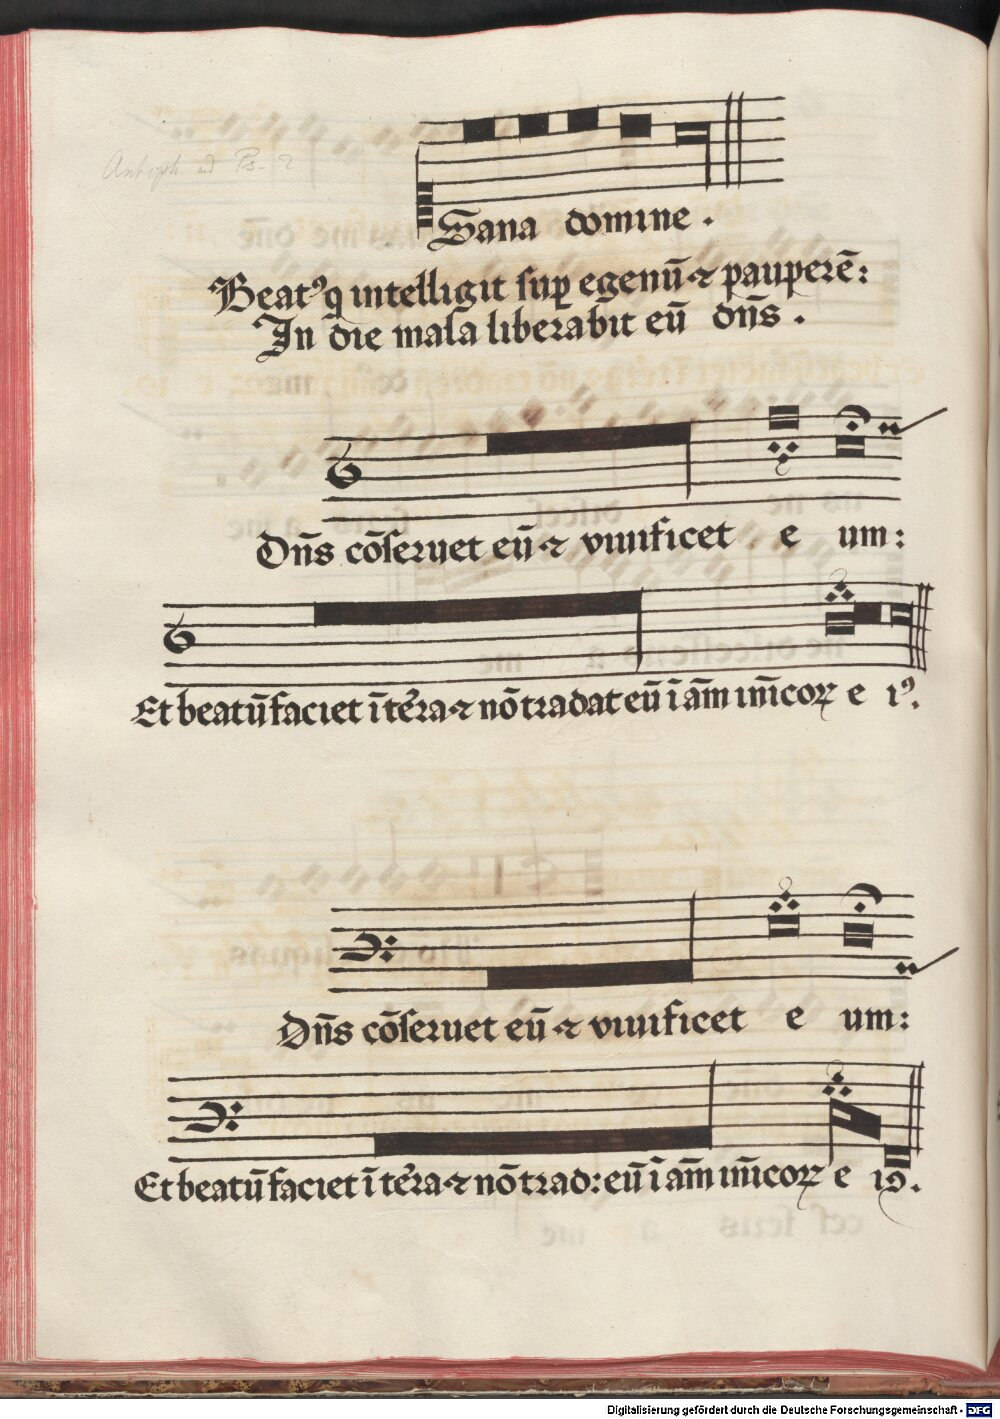 Antiph. ad Ps. 2
Sana domine .
Beatꝰ q intelligit suꝑ egenū ⁊ pauperē:
In die mala liberabit eū dn̄s .
Dn̄s cōseruet eū ⁊ viuificet e um:
Et beatū faciet ī te᷒ra ⁊ nō tradat eū ī am̄ inīcoꝝ e iꝰ.
Dn̄s cōseruet eū ⁊ viuificet e um:
Et beatū faciet ī te᷒ra ⁊ nō trad: eū ī am̄ inīcoꝝ e iꝰ.
Digitalisierung gefördert durch die Deutsche Forschungsgemeinschaft - DFG